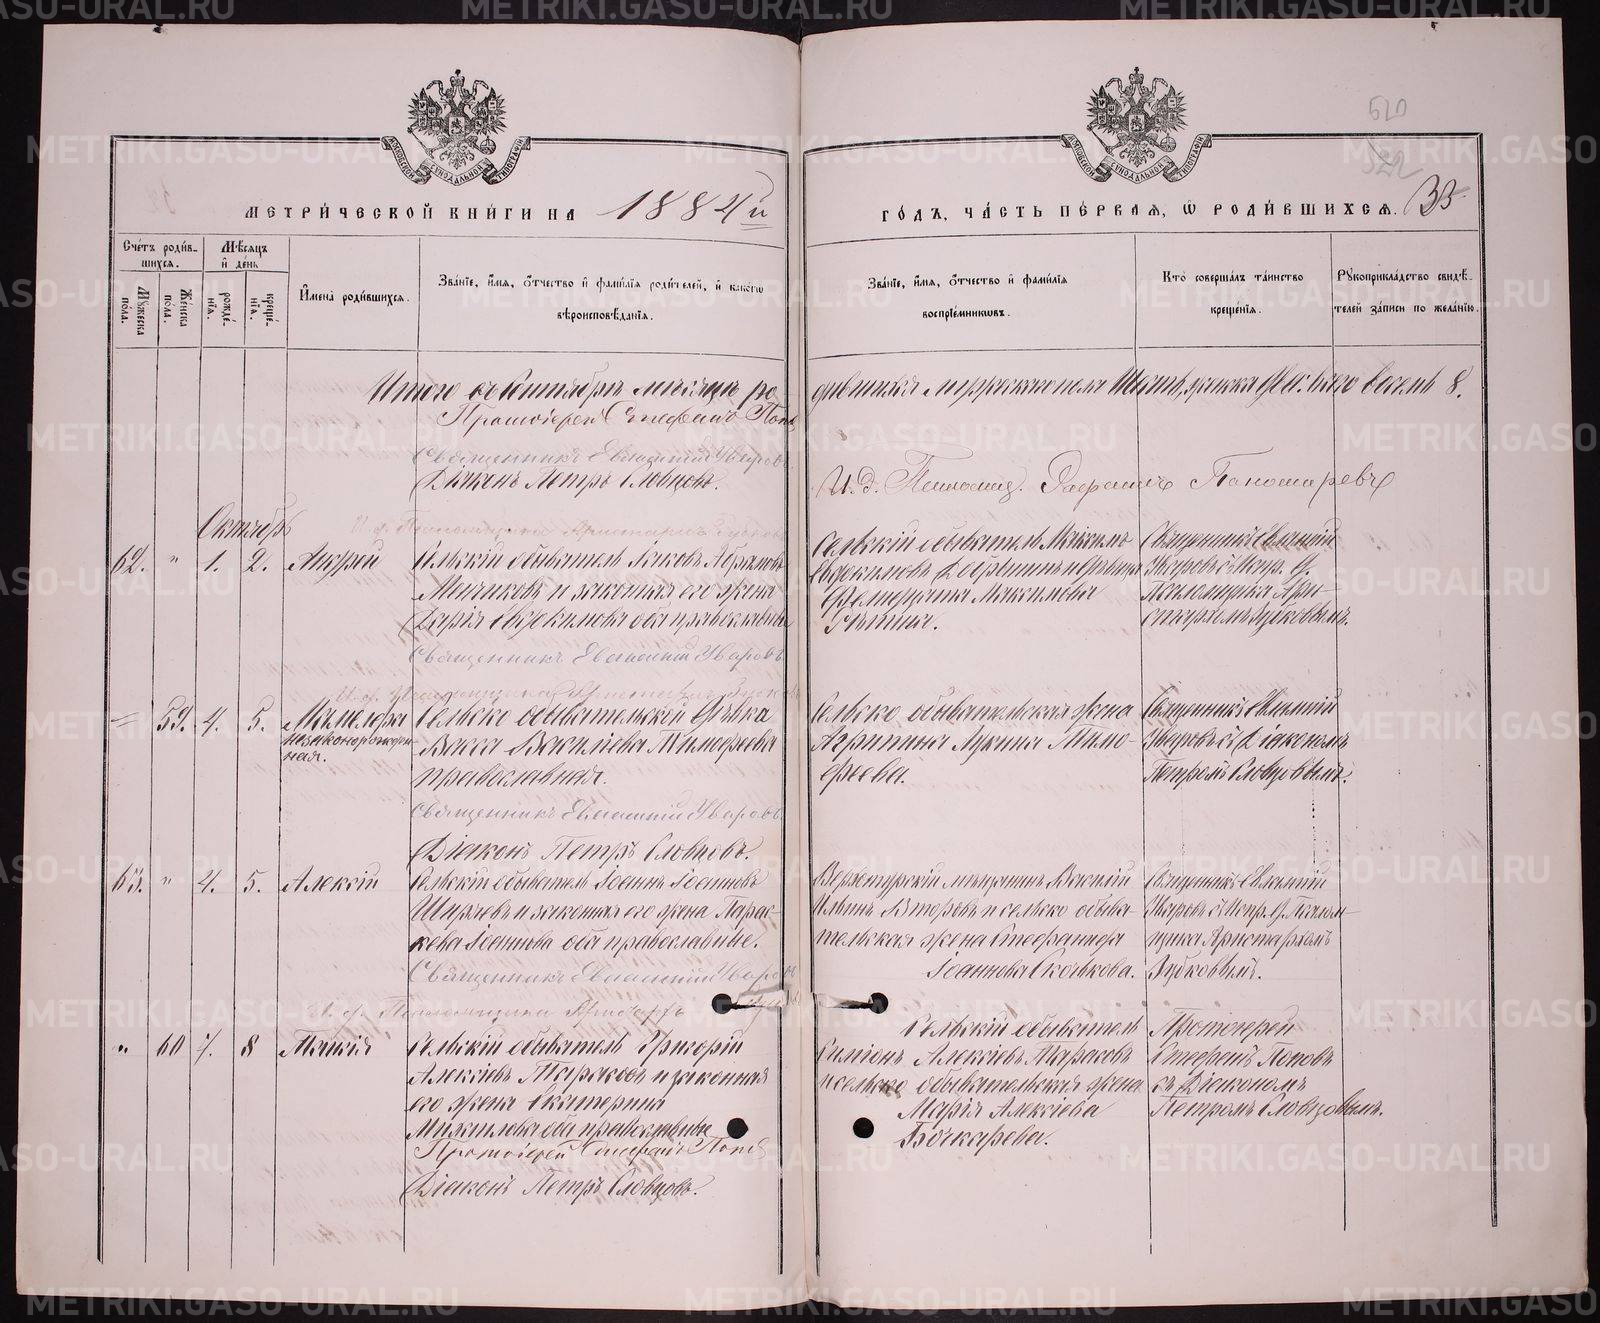 METRIKI.GASO-URAL.RU
МОСКОВСКОЙ СѴНОДАЛЬНОЙ ТИПОГРАФІИ
МОСКОВСКОЙ СѴНОДАЛЬНОЙ ТИПОГРАФІИ
520
522
МЕТРИ́ЧЕСКОЙ КНИ́ГИ НА 1884й
ГО́ДЪ, ЧА́СТЬ ПЕ́РВАЯ, Ѡ РОДИ́ВШИХСЯ. 33
Сче́тъ роди́в-
шихся.
Му́жеска по́ла.
Же́нска по́ла.
Мѣ́сяцъ
и де́нь
рожде́-
нія.
креще́-
нія.
Имена̀ роди́вшихся.
Зва́ніе, и́мя, о́тчество и фами́лія роди́телей, и како́гѡ
вѣроисповѣ́данія.
Зва́ніе, и́мя, о́тчество и фами́лія
воспріе́мникѡвъ.
Кто̀ соверша́лъ та́инство
креще́нія.
Рукоприкла́дство свидѣ́-
телей за́писи по жела́нію.
Итого въ Сентябрѣ мѣсяцѣ ро
дившихся мужескаго пола Шесть, женска два. Всего восемь 8.
Протоіерей Стефанъ Попо
Священникъ Евлампій Уваровъ
Діаконъ Петръ Словцовъ.
И. д. Псаломщ. Пономаревъ
Октябрь
62. " 1. 2. Андрей
Сельскій обыватель Іаковъ
и законная его жена
Дарія Евдокимова оба православные
Священникъ Евлампій Уваровъ
Сельскій обыватель Максимъ
Евдокимовъ
Максимова
Священникъ Евлампій
Уваровъ съ Испр. д.
Псаломщика Ари-
стархомъ Зубковымъ.
59. 4. 5.
незаконорожден-
ная.
Сельско обывательской дѣвка
Васса Василіева Тимофеева
православная.
Священникъ Евлампій Уваровъ
Діаконъ Петръ Словцовъ.
Сельско обывательская жена
Агрипина Лукина Тимо-
феева.
Священникъ Евлампій
Уваровъ съ Діакономъ
Петромъ Словцовымъ.
63. " 4. 5. Алексій
Сельскій обыватель Іоаннъ Іоанновъ
Ширяевъ и законная его жена Парас-
кева Іоаннова оба православные.
Священникъ Евлампій Уваровъ
Верхотурскій мѣщанинъ Василій
Ильинъ Второвъ и сельско обыва-
тельская жена Стефанида
Іоаннова Скочкова.
Священникъ Евлампій
Уваровъ съ Испр. д. Псалом-
щика Аристархомъ
Зубковымъ.
" 60 7. 8 Таисія
Сельскій обыватель Григорій
Алексіевъ Тараковъ и законная
его жена Екатерина
Михаилова оба православные
Протоіерей Стефанъ Попо
Діаконъ Петръ Словцовъ.
Сельскій обыватель
Алексіевъ Тараковъ
и сельско обывательская жена
Марія Алексіева
Бочкарева.
Протоіерей
Стефанъ Поповъ
съ Діакономъ
Петромъ Словцовымъ.